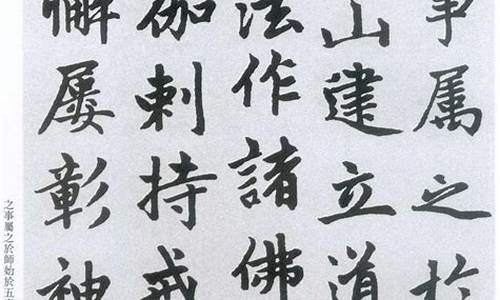 事属之於
山建立道
法作諸佛
伽剌持戒
懈屢彰神
之事屬之於師始於五